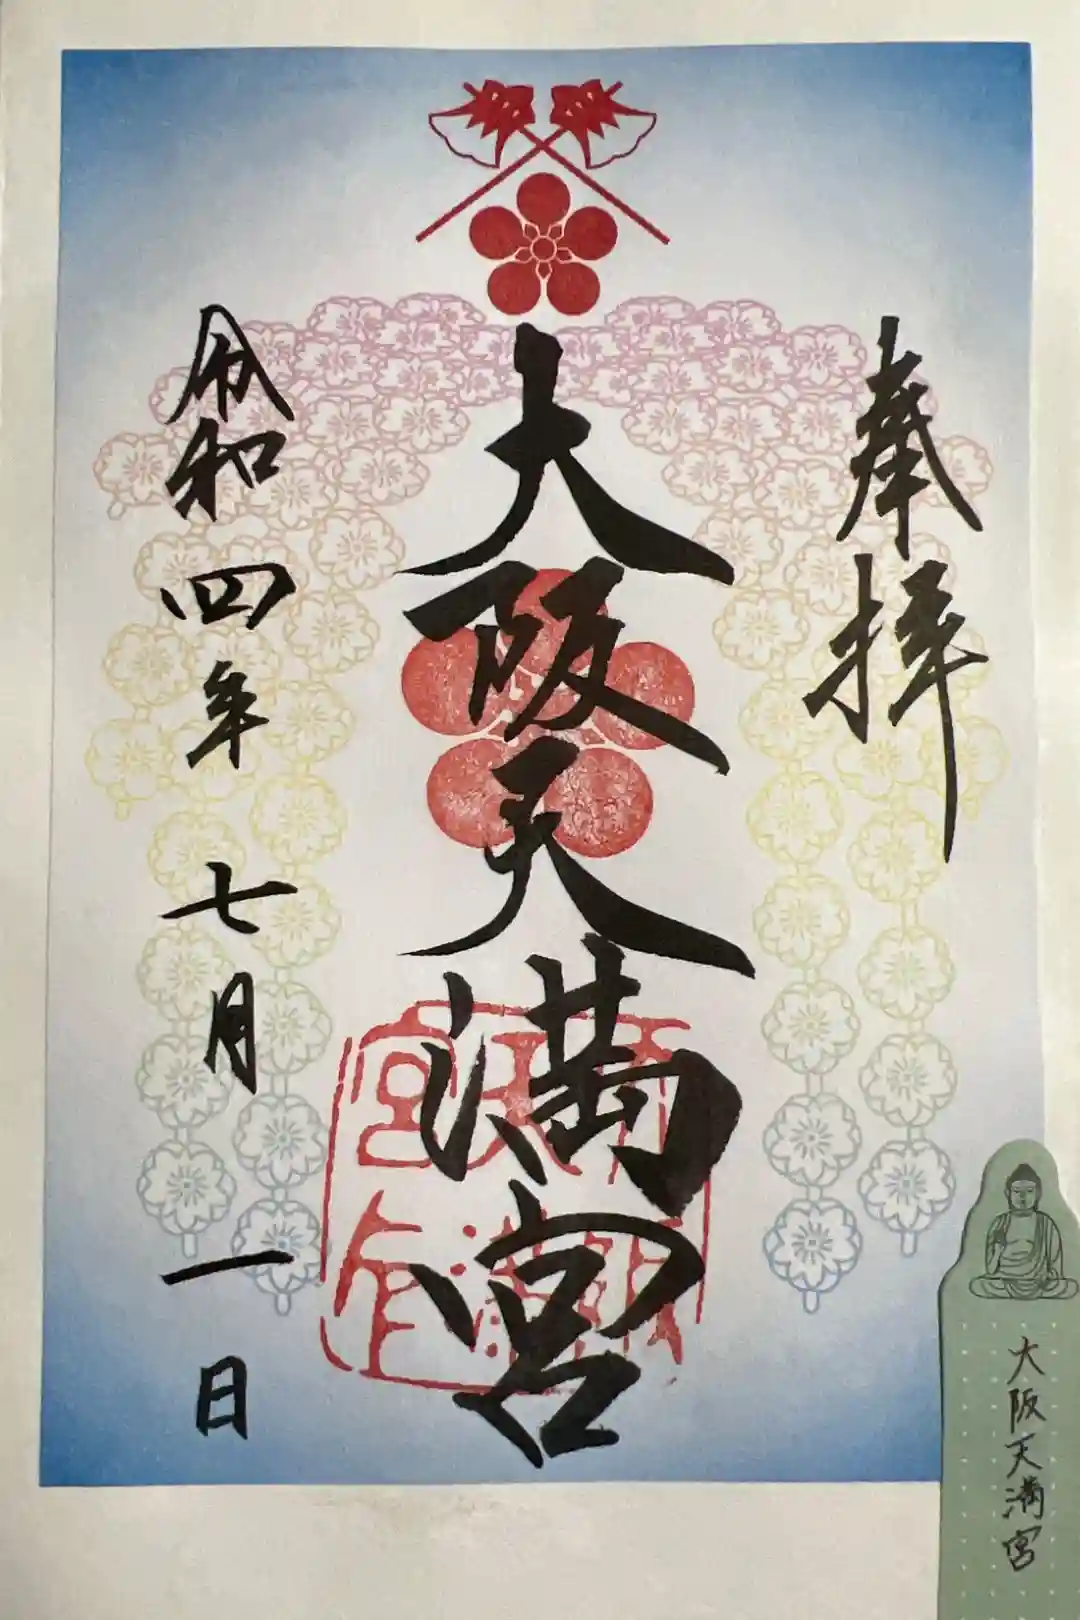 奉拝
大阪天満宮
令和四年 七月 一日
大阪天満宮